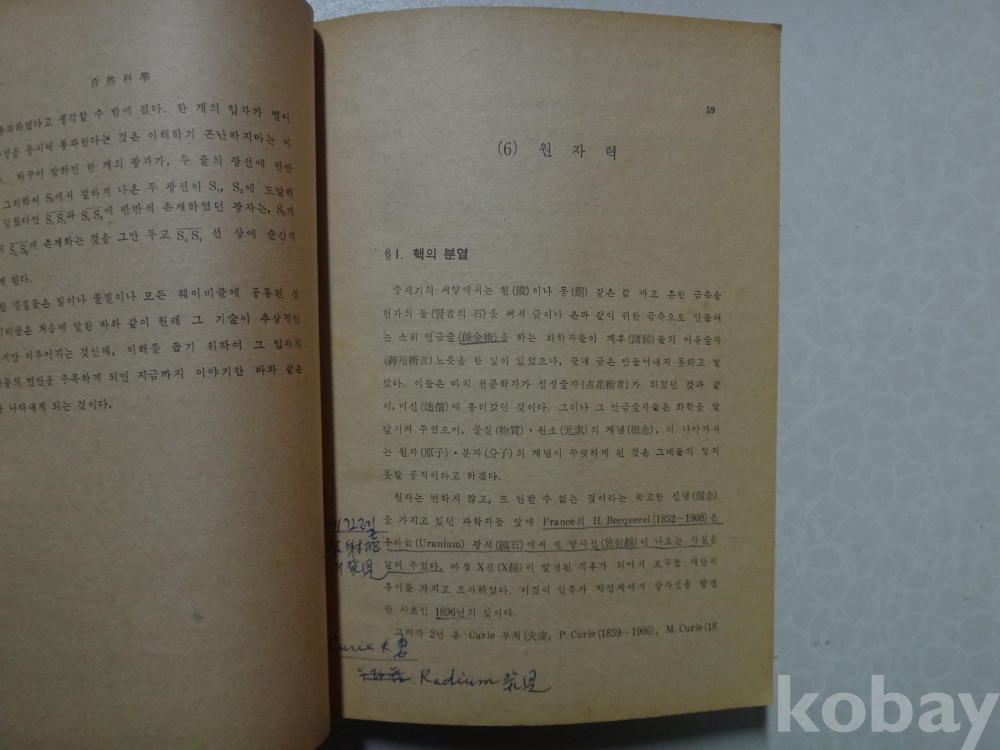 自然科學
통과하였다고 생각할 수 밖에 없다. 한 개의 입자가 떨어
동시에 통과한다는 것은 이해하기 곤난하지마는 이
바꾸어 말하면 한 개의 광자가, 두 줄의 광선에 반반
그리하여 S₀에서 갈라져 나온 두 광선이 S₁, S₂에 도달하
반반씩 존재하였던 광자는,
에 존재하는 것을 그만 두고 선 상에 순간적
게 된다.
한 성질들은 빛이나 물질이나 모든 웨이비클에 공통된 성
이비클은 처음에 말한 바와 같이 원래 그 기술이 추상적인
서만 이루어지는 것인데, 이해를 돕기 위하여 그 입자의
동의 현만을 주목하게 되면 지금까지 이야기한 바와 같은
나타내게 되는 것이다.
59
(6) 원자력
§1. 핵의 분열
중세기의 서양에서는 철(鐵)이나 동(銅) 같은 값 싸고 흔한 금속을
현자의 돌(賢者의 石)을 써서 금이나 은과 같이 귀한 금속으로 만들려
는 소위 연금술(鍊金術)을 하는 화학자들이 제후(諸侯)들의 어용술자
(御用術者) 노릇을 한 일이 있었으나, 끝내 금은 만들어내지 못하고 말
았다. 이들은 마치 천문학자가 점성술자(占星術者)가 되었던 것과 같
이, 미신(迷信)에 흘러갔던 것이다. 그러나 그 연금술자들은 화학을 발
달시켜 주었으며, 물질(物質)·원소(元素)의 개념(概念), 더 나아가서
는 원자(原子)·분자(分子)의 개념이 뚜렷하게 된 것은 그네들의 잊지
못할 공적이라고 하겠다.
원자는 변하지 않고, 또 변할 수 없는 것이라는 확고한 신념(信念)
을 가지고 있던 과학자들 앞에 France의 H. Becquerel(1852~1908)은
우라늄(Uranium) 광석(鑛石)에서 방사선(放射線)이 나오는 사실을
알려 주었다. 마침 X선(X線)이 발견된 직후가 되어서 모두들 대단히
흥미를 가지고 조사하였다. 이것이 인류가 자연계에서 방사선을 발견
한 시초인 1896년의 일이다.
그러자 2년 후 Curie 부처(夫妻, P. Curie(1859~1906), M. Curie(18
Curie 夫妻
Radium 発見
kobay